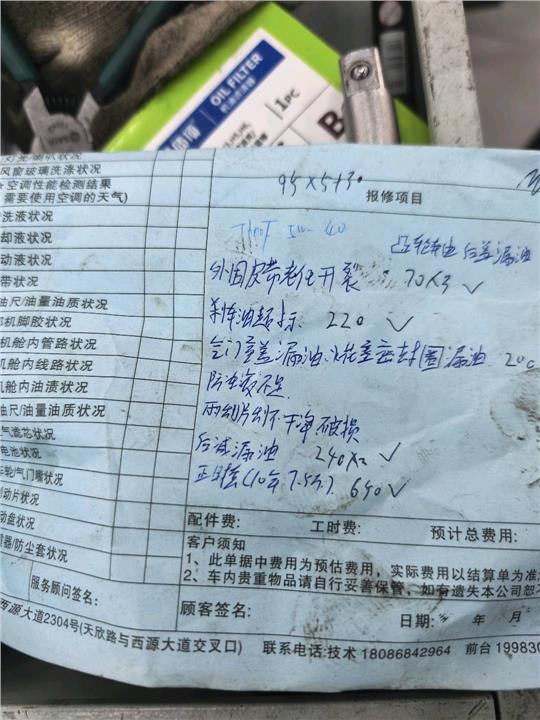 OIL FILTER
机油滤清器
1PC
灯光/喇叭状况
风窗玻璃洗涤状况
★空调性能检测结果
需要使用空调的天气)
洗液状况
却液状况
动液状况
带状况
油尺/油量油质状况
机脚胶状况
机舱内管路状况
机舱内线路状况
机舱内油渍状况
油尺/油量油质状况
气滤芯状况
电池状况
车轮/气门嘴状况
制动片状况
动盘状况
震器/防尘套状况
服务顾问签名:
95×5+30
报修项目
5W-40
凸轮轴后盖漏油
外围皮带老化开裂 70×3 ✓
刹车油超标 220 ✓
气门室盖漏油.火花塞密封圈漏油 200
防冻液不足
雨刮片刮不干净破损
后减漏油 240×2 ✓
正时套(10年7.5万) 690 ✓
配件费: 工时费: 预计总费用:
客户须知
1、此单据中费用为预估费用，实际费用以结算单为准
2、车内贵重物品请自行妥善保管，如有遗失本公司恕不
顾客签名: 日期: 年 月
西源大道2304号(天欣路与西源大道交叉口) 联系电话:技术 18086842964 前台 199830